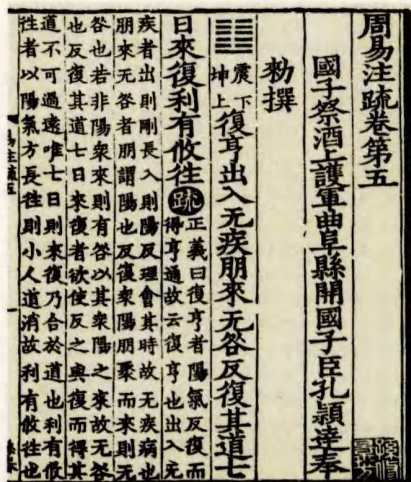 周易注疏卷第五
國子祭酒上護軍曲阜縣開國子臣孔穎達奉
勑撰
震下
坤上
復亨出入无疾朋來无咎反復其道七
日來復利有攸往
疏
正義曰復亨者陽氣反復而
得亨通故云復亨也出入无
疾者出則剛長入則陽反理會其時故无疾病也
朋來无咎者朋謂陽也反復衆陽朋聚而來則无
咎也若非陽衆來則有咎以其衆陽之來故无咎
也反復其道七日來復者欲使反之與復而得其
道不可過遠唯七日則來復乃合於道也利有攸
往者以陽氣方長往則小人道消故利有攸往也